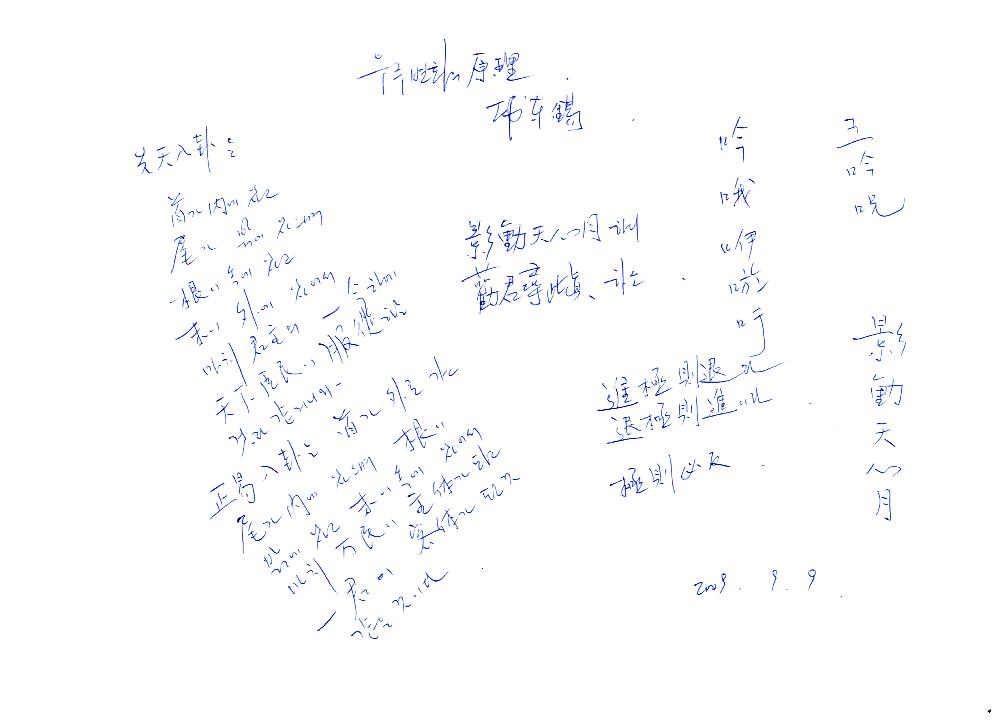 우주변화의 原理
邵康節
先天八卦는
首가 內에 있고
尾가 밖에 있으며
根이 속에 있고
末이 外에 있어서
마치 君主의 一令下에
天下 庶民이 服從하는
것과 같거니와
正易八卦는 首가 外로 가고
尾가 內에 있으며 根이
밖에 있고 末이 속에 있어서
마치 万民이 主体가 되고
一君이 客体가 된 것과
같은 것이다
影動天心月 하니
勸君尋此眞、하소
進極則退고
退極則進이라
極則必反
吟
哦
咿
唹
吁
五
吟
呪
影
動
天
心
月
2009. 9. 9.